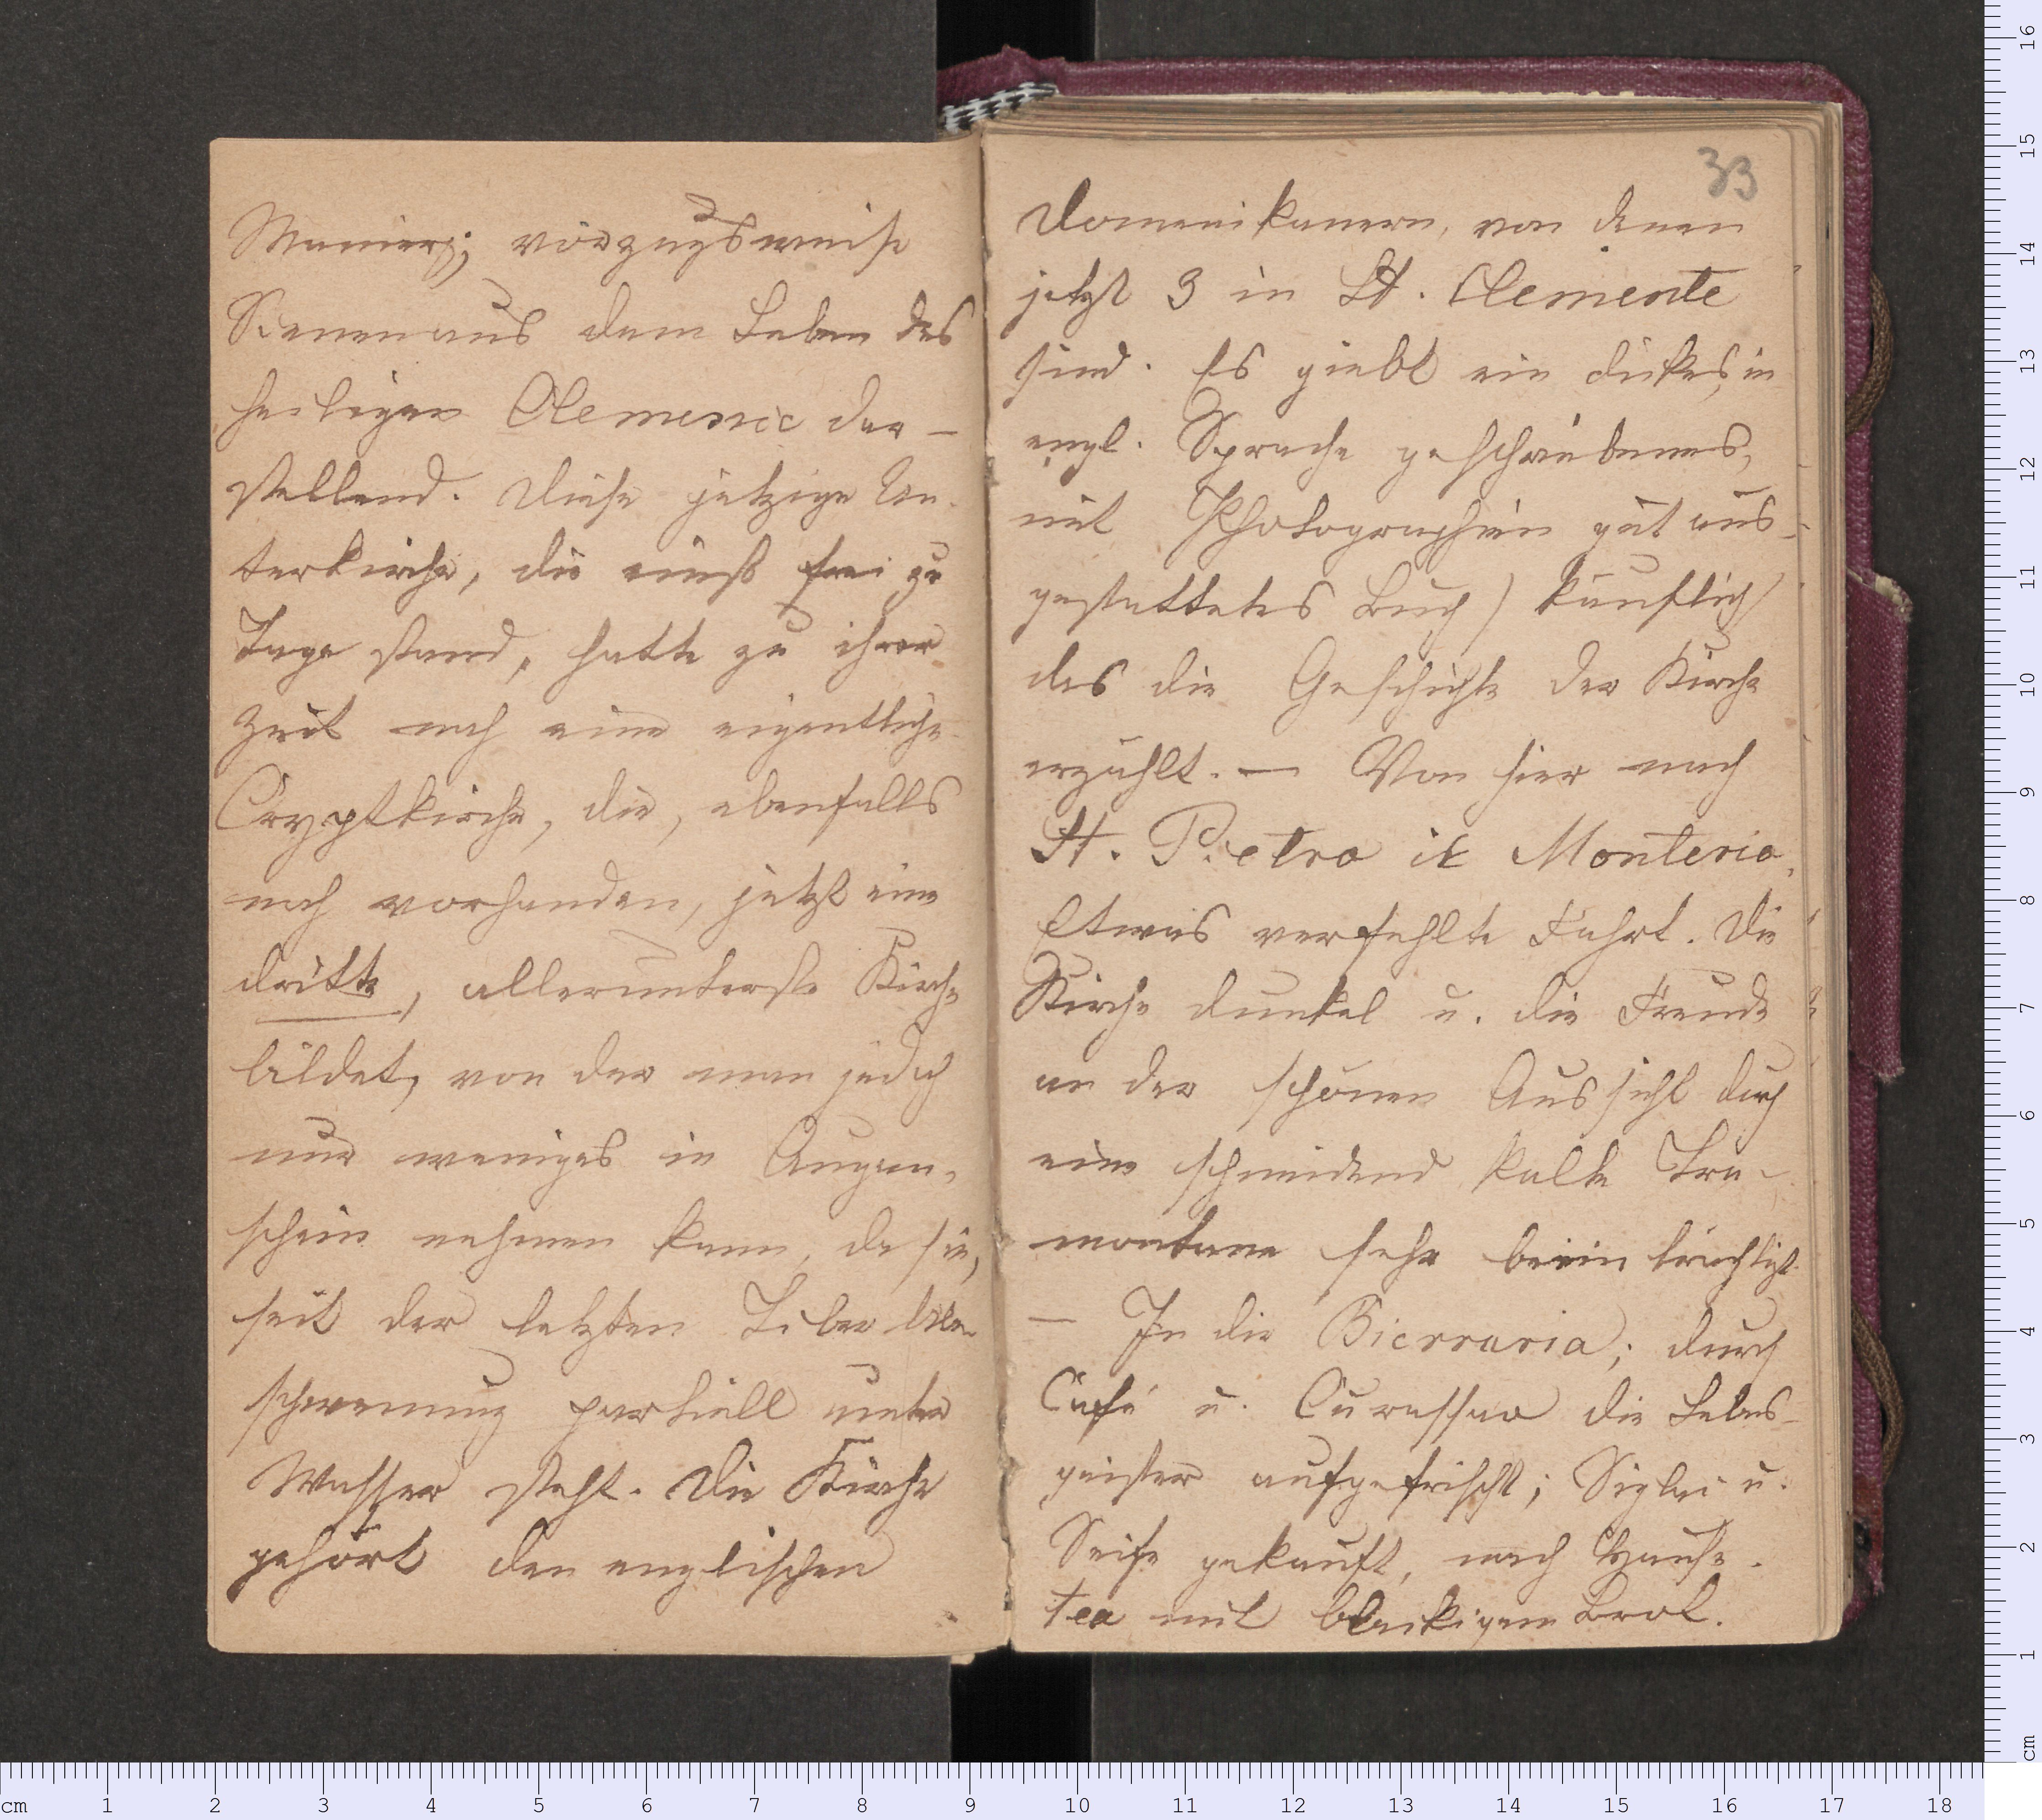 Manier; vorzugsweise
Scenen aus dem Leben des
heiligen Clemens dar-
stellend. Diese jetzige Un-
terkirche, die einst frei zu
Tage stand, hatte zu ihrer
Zeit noch eine eigentliche
Cryptkirche, die, ebenfalls
noch vorhanden, jetzt eine
dritte, allerunterste Kirche
bildet, von der man jedoch
nur weniges in Augen-
schein nehmen kann, da sie,
seit der letzten Tiber Ueber-
schwemmung partiell unter
Wasser steht. Die Kirche
gehört den englischen
33
Domenikanern, von denen
jetzt 3 in St. Clemente
sind. Es giebt ein dickes, in
engl. Sprache geschriebenes,
mit Photographien gut aus-
gestattetes Buch (käuflich)
das die Geschichte der Kirche
erzählt. — Von hier nach
St. Pietro in Montorio.
Etwas verfehlte Fahrt. Die
Kirche dunkel u. die Freude
an der schönen Aussicht durch
eine schneidend kalte Tra-
montane sehr beeinträchtigt.
— In die Bierraria; durch
Café u. Curassao die Lebens-
geister aufgefrischt; Siglei u.
Seife gekauft, nach Hause.
Tea mit bleckigem Brot.